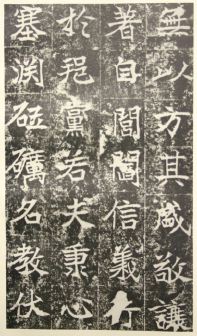 無以方其盛敬讓
著自閭閻信義行
於邑黨若夫秉心
塞渕砥礪名教伏